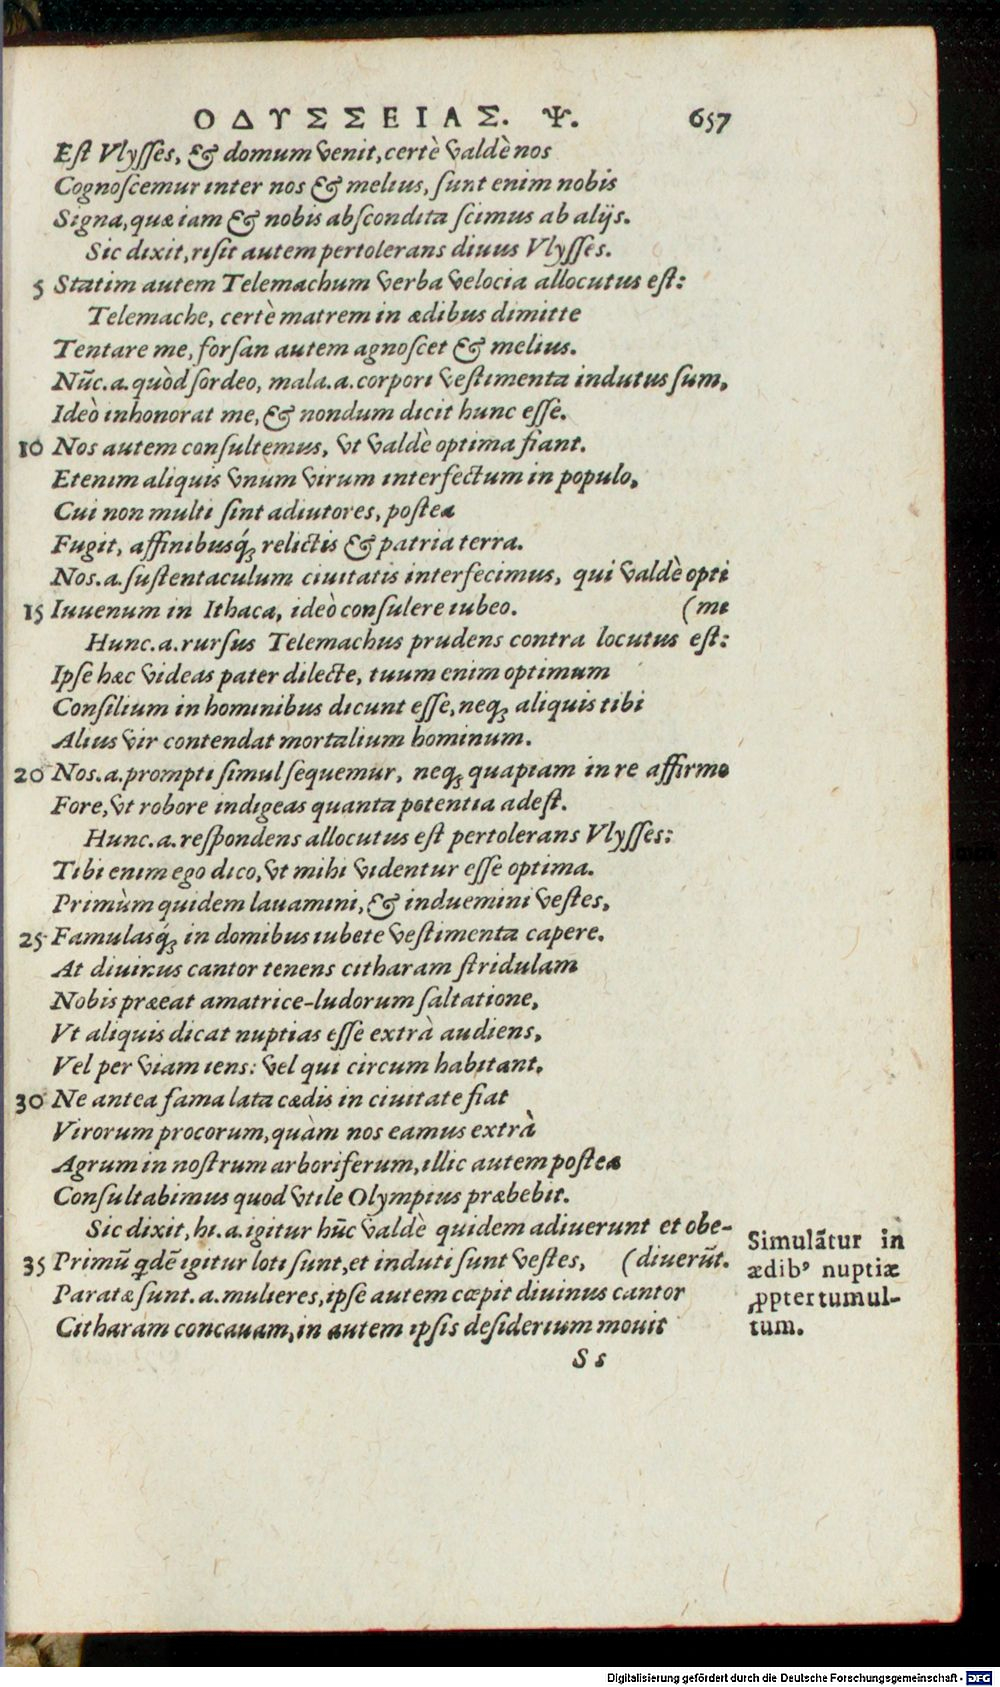 ΟΔΥΣΣΕΙΑΣ. Ψ. 657
Est Vlysses, & domum venit, certè valdè nos
Cognoscemur inter nos & melius, sunt enim nobis
Signa, quæ iam & nobis abscondita scimus ab alijs.
Sic dixit, risit autem pertolerans diuus Vlysses.
5 Statim autem Telemachum verba velocia allocutus est:
Telemache, certè matrem in ædibus dimitte
Tentare me, forsan autem agnoscet & melius.
Nūc.a.quòd sordeo, mala.a.corpori vestimenta indutus sum,
Ideò inhonorat me, & nondum dicit hunc esse.
10 Nos autem consultemus, vt valdè optima fiant.
Etenim aliquis vnum virum interfectum in populo,
Cui non multi sint adiutores, postea
Fugit, affinibusq́ꝫ relictis & patria terra.
Nos.a.sustentaculum ciuitatis interfecimus, qui valdè opti
15 Iuuenum in Ithaca, ideò consulere iubeo. (me
Hunc.a.rursus Telemachus prudens contra locutus est:
Ipse hæc videas pater dilecte, tuum enim optimum
Consilium in hominibus dicunt esse, neqꝫ aliquis tibi
Alius vir contendat mortalium hominum.
20 Nos.a.prompti simul sequemur, neqꝫ quapiam in re affirmo
Fore, vt robore indigeas quanta potentia adest.
Hunc.a.respondens allocutus est pertolerans Vlysses:
Tibi enim ego dico, vt mihi videntur esse optima.
Primùm quidem lauamini, & induemini vestes,
25 Famulasq́ꝫ in domibus iubete vestimenta capere.
At diuinus cantor tenens citharam stridulam
Nobis præeat amatrice-ludorum saltatione,
Vt aliquis dicat nuptias esse extrà audiens,
Vel per viam iens: vel qui circum habitant.
30 Ne antea fama lata cædis in ciuitate fiat
Virorum procorum, quàm nos eamus extrà
Agrum in nostrum arboriferum, illic autem postea
Consultabimus quod vtile Olympius præbebit.
Sic dixit, hi.a.igitur hūc valdè quidem adiuerunt et obe-
35 Primū qdē igitur loti sunt, et induti sunt vestes, (diuerūt.
Paratæ sunt.a.mulieres, ipse autem cœpit diuinus cantor
Citharam concauam, in autem ipsis desiderium mouit
S s
Simulātur in
ædibꝰ nuptiæ
ꝓpter tumul-
tum.
Digitalisierung gefördert durch die Deutsche Forschungsgemeinschaft - DFG